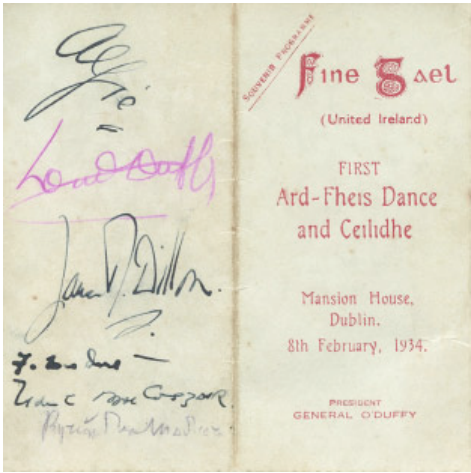 Alfie
Eoin O'Duffy
James M. Dillon.
SOUVENIR PROGRAMME
Fine Gael
(United Ireland)
FIRST
Ard-Fheis Dance
and Ceilidhe
Mansion House,
Dublin.
8th February, 1934.
PRESIDENT
GENERAL O'DUFFY